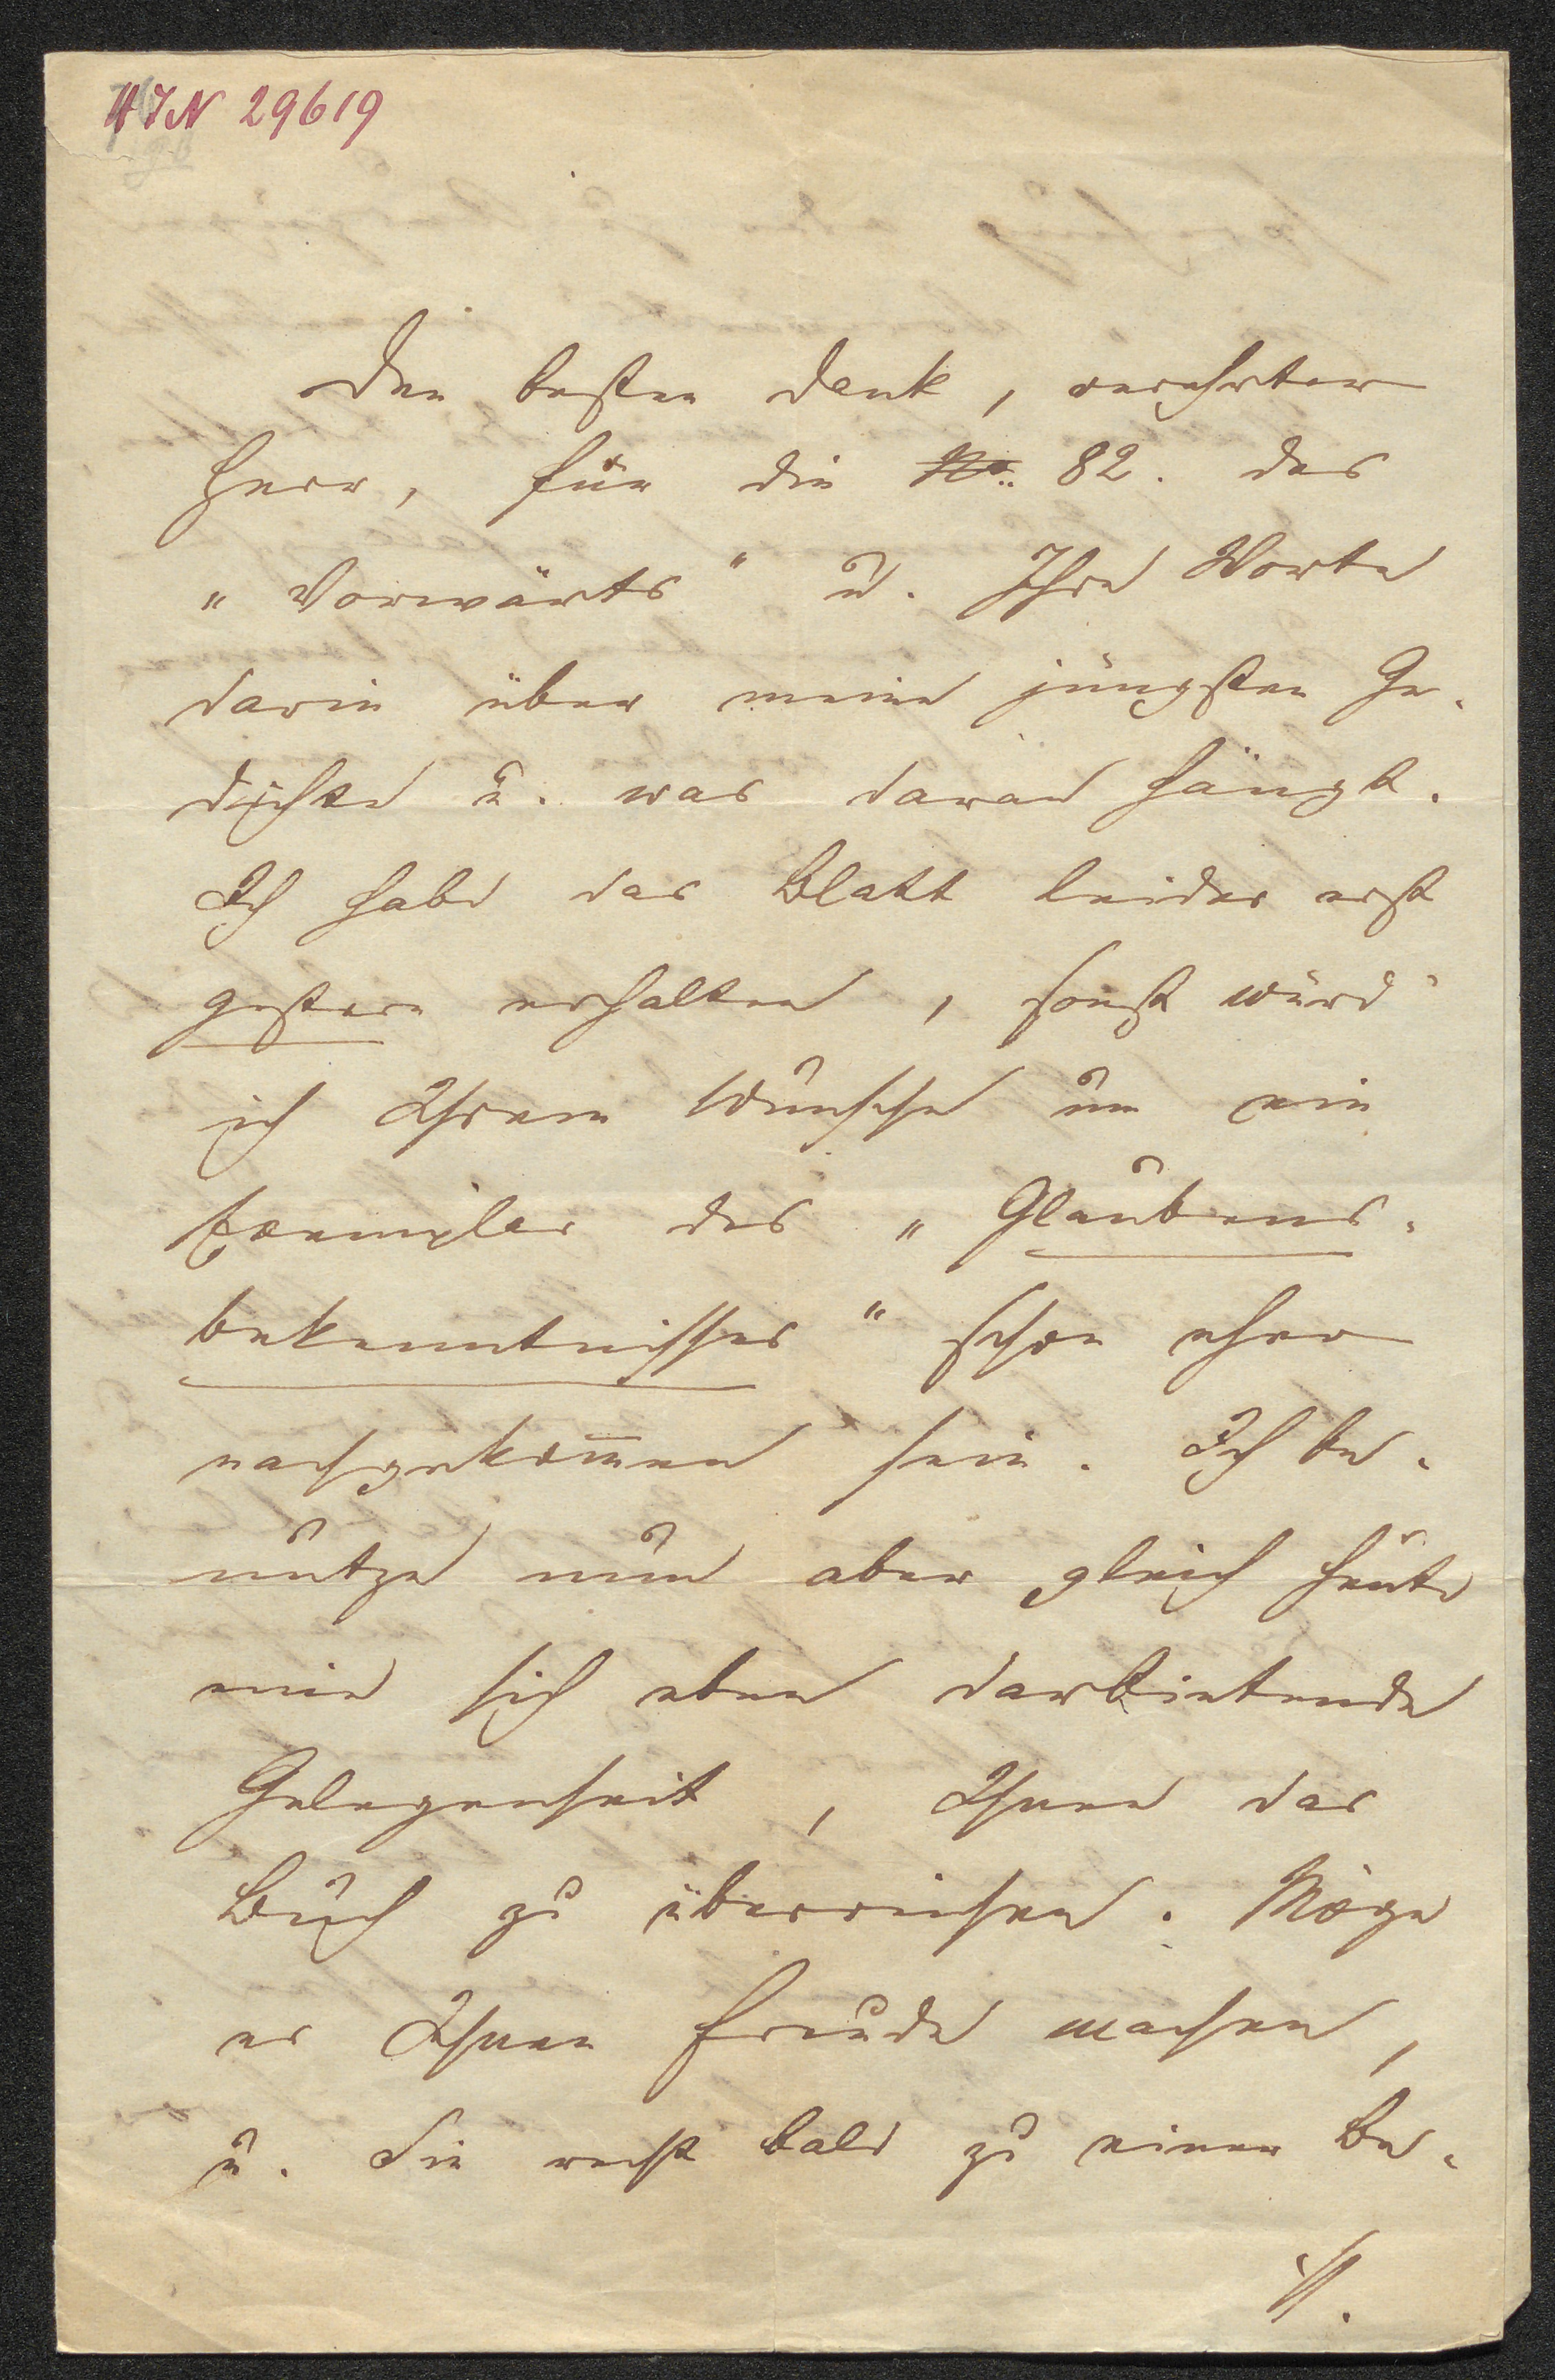 HIN 29619
Den besten Dank, verehrter
Herr, für die No. 82. des
"Vorwärts" u. Ihre Worte
darin über meine jüngsten Ge-
dichte u. was daran hängt.
Ich habe das Blatt leider erst
gestern erhalten, sonst würd'
ich Ihrem Wunsche um ein
Exemplar des "Glaubens-
bekenntnisses" schon eher
nachgekom̅en sein. Ich be-
nutze nun aber gleich heute
eine sich eben darbietende
Gelegenheit, Ihnen das
Buch zu überreichen. Möge
es Ihnen Freude machen,
u. Sie recht bald zu einer Be-